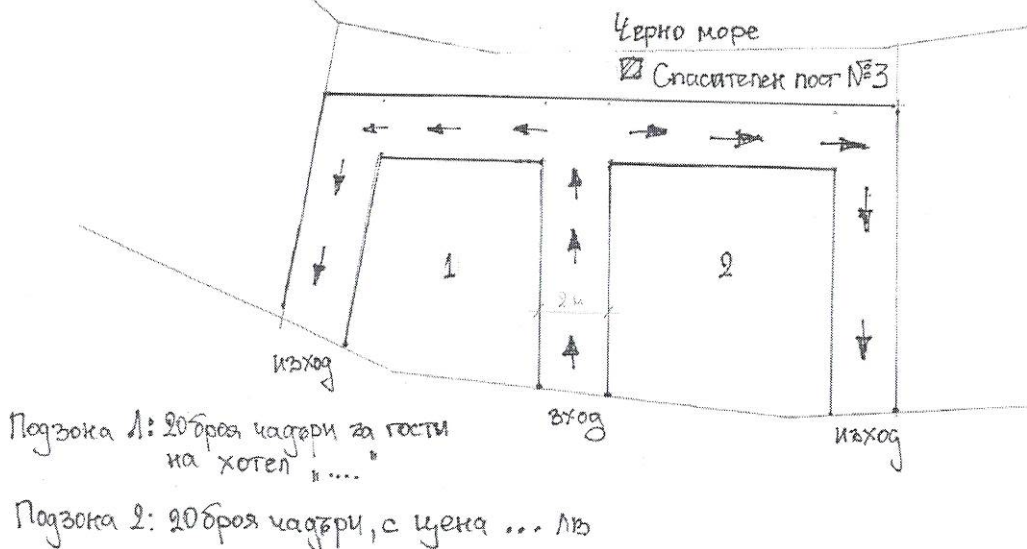 Черно море
Спасителен пост №3
1
2
2 м
изход
вход
изход
Подзона 1: 20 броя чадъри за гости
на хотел „....“
Подзона 2: 20 броя чадъри, с цена ... лв